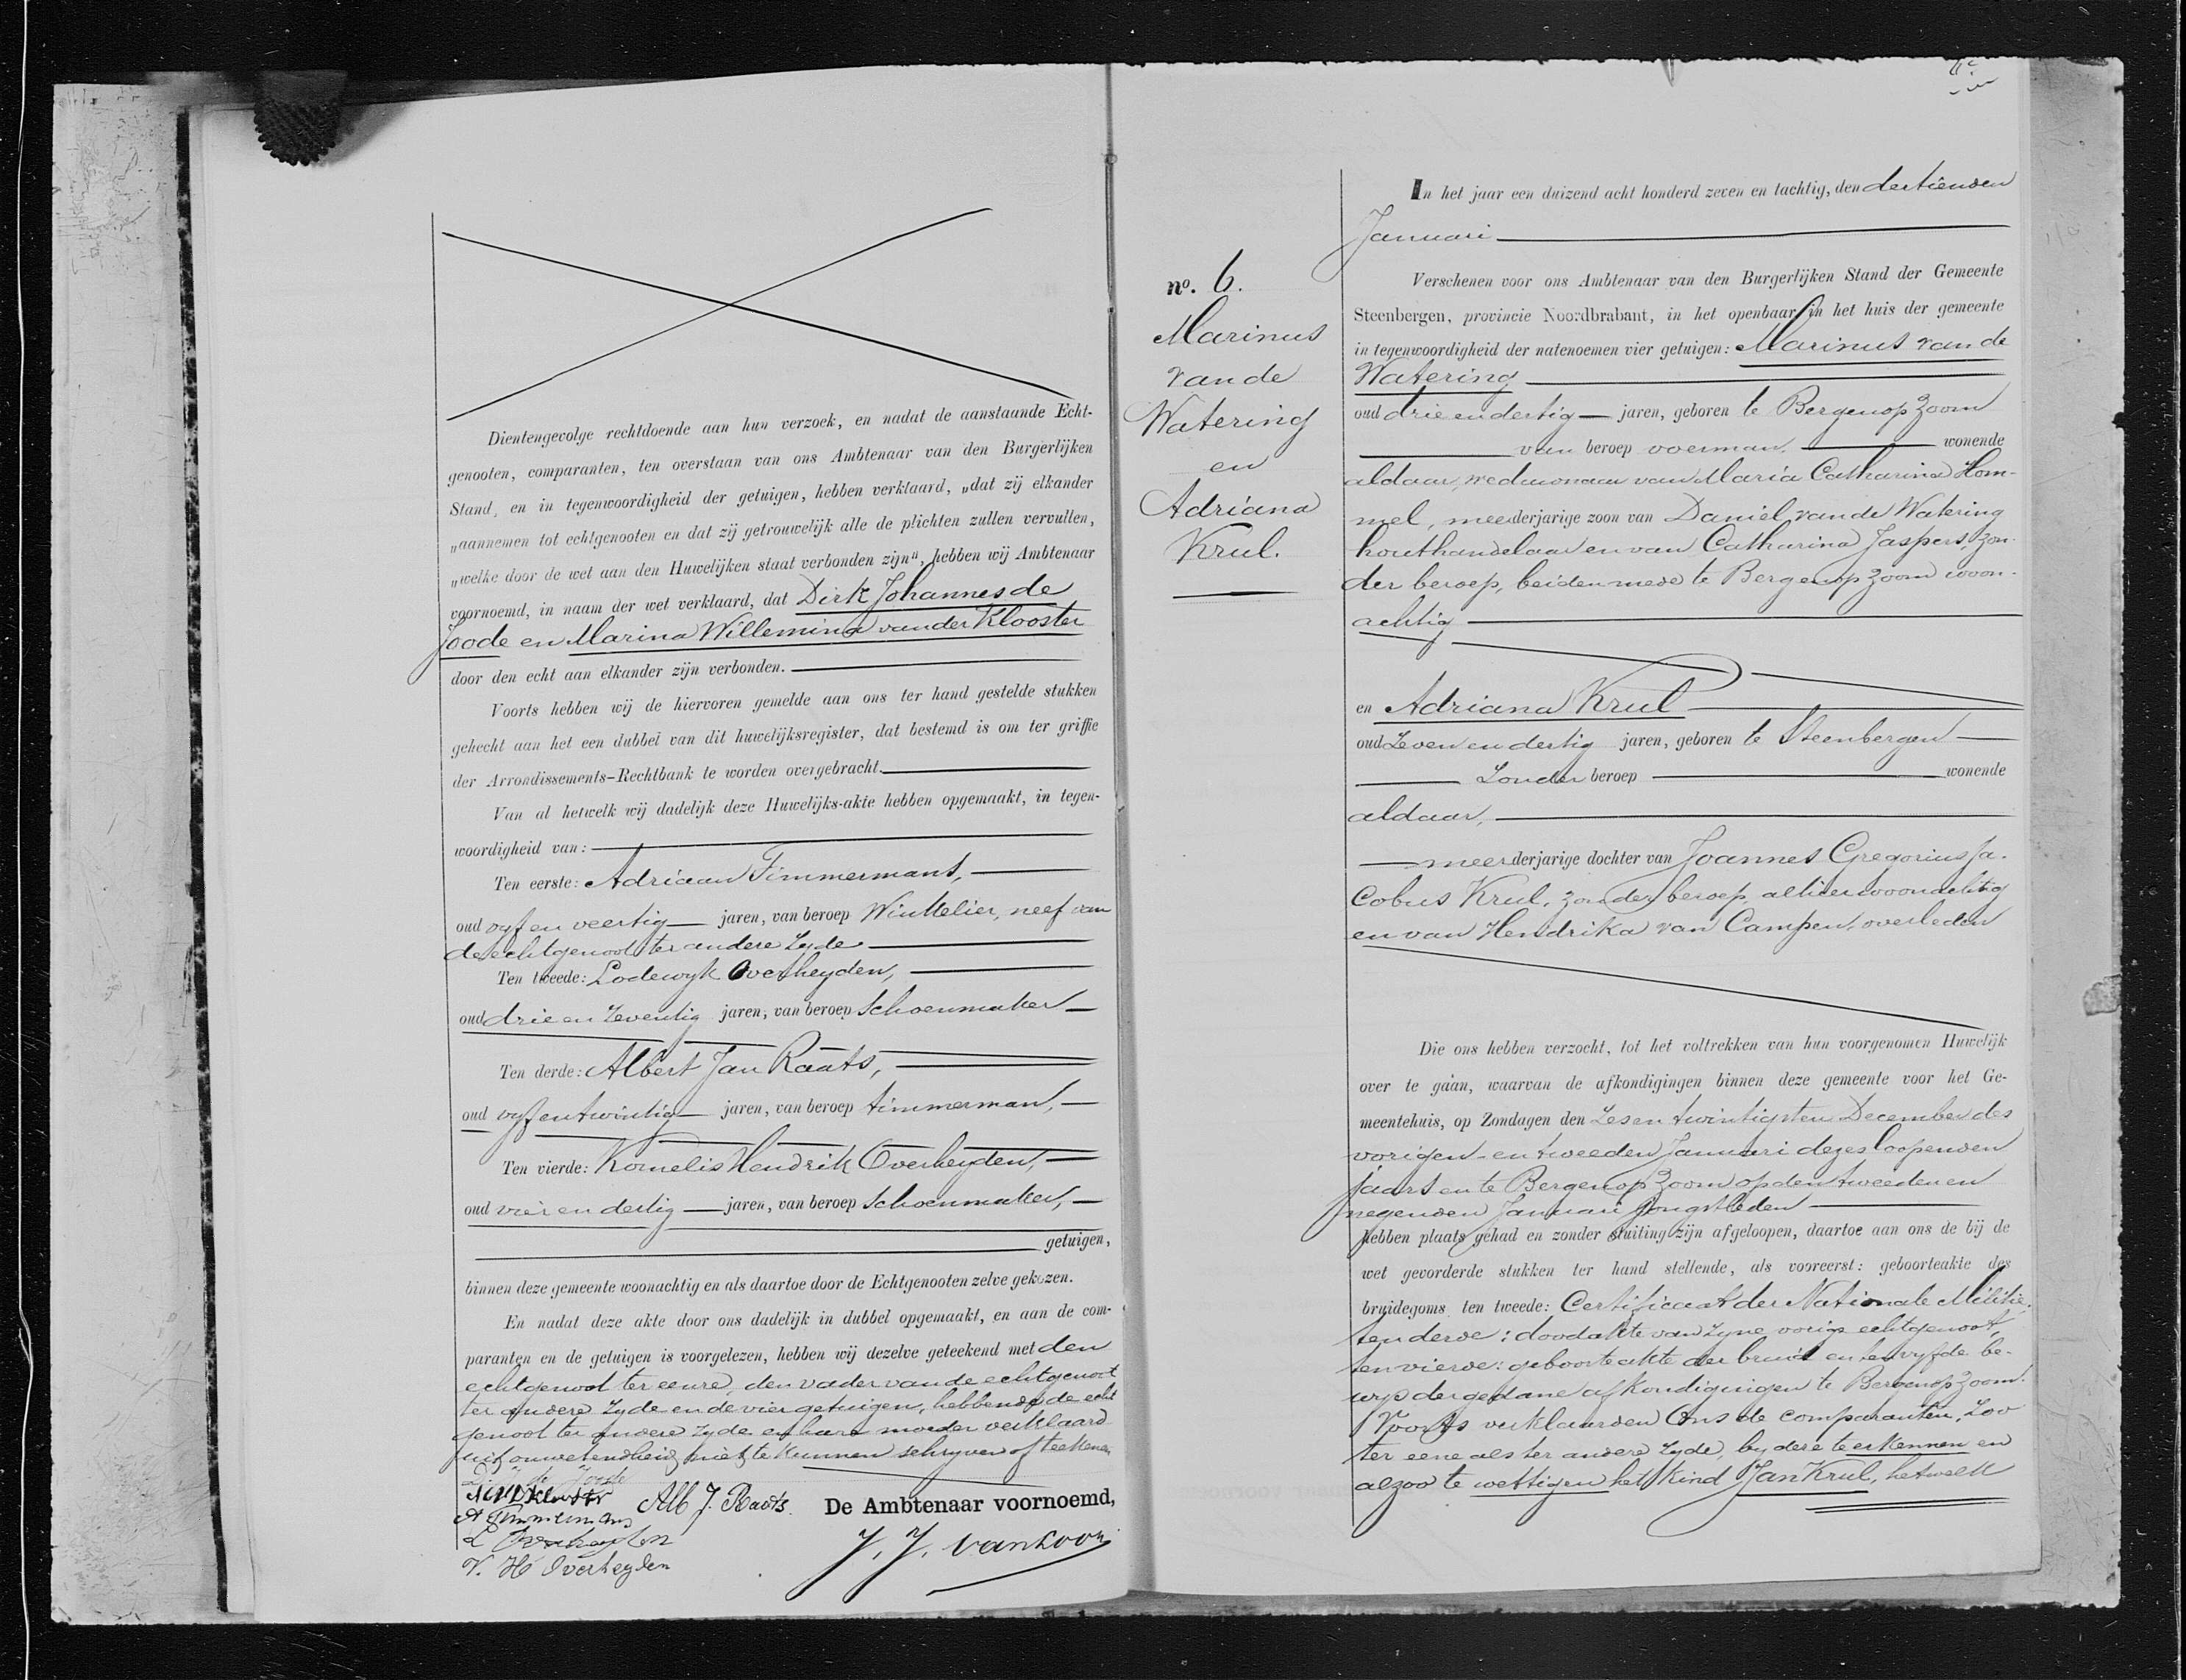 Dientengevolge rechtdoende aan hun verzoek, en nadat de aanstaande Echt-
genooten, comparanten, ten overstaan van ons Ambtenaar van den Burgerlijken
Stand, en in tegenwoordigheid der getuigen, hebben verklaard, „dat zij elkander
„aannemen tot echtgenooten en dat zij getrouwelijk alle de plichten zullen vervullen,
„welke door de wet aan den Huwelijken staat verbonden zijn", hebben wij Ambtenaar
voornoemd, in naam der wet verklaard, dat Dirk Johannes de
Joode en Marina Willemina van der Klooster
door den echt aan elkander zijn verbonden.
Voorts hebben wij de hiervoren gemelde aan ons ter hand gestelde stukken
gehecht aan het een dubbel van dit huwelijksregister, dat bestemd is om ter griffie
der Arrondissements-Rechtbank te worden overgebracht.
Van al hetwelk wij dadelijk deze Huwelijks-akte hebben opgemaakt, in tegen-
woordigheid van:
Ten eerste: Adriaan Timmermans,
oud vyf en veertig jaren, van beroep Winkelier, neef van
de echtgenoot ter andere Zyde
Ten tweede: Lodewyk Overheyden,
oud drie en Zeventig jaren, van beroep Schoenmaker
Ten derde: Albert Jan Raats,
oud vyf en twintig jaren, van beroep timmerman,
Ten vierde: Kornelis Hendrik Overheyden,
oud vier en dertig jaren, van beroep Schoenmaker,
getuigen,
binnen deze gemeente woonachtig en als daartoe door de Echtgenooten zelve gekozen.
En nadat deze akte door ons dadelijk in dubbel opgemaakt, en aan de com-
paranten en de getuigen is voorgelezen, hebben wij dezelve geteekend met den
echtgenoot ter eenre, den vader van de echtgenoot
ter andere Zyde en de vier getuigen, hebbende de echt
genoot ter andere Zyde en hare moeder verklaard
uit onwetendheid niet te kunnen schryven of teekenen
D. J. de Joode
A Timmermans Alb J. Raats. De Ambtenaar voornoemd,
L Overheyden
K. H Overheyden J. J. van Loon
no. 6.
Marinus
van de
Watering
en
Adriana
Krul.
In het jaar een duizend acht honderd zeven en tachtig, den dertienden
Januari
Verschenen voor ons Ambtenaar van den Burgerlijken Stand der Gemeente
Steenbergen, provincie Noordbrabant, in het openbaar in het huis der gemeente
in tegenwoordigheid der natenoemen vier getuigen: Marinus van de
Watering
oud drie en dertig jaren, geboren te Bergen op Zoom
van beroep voerman, wonende
aldaar, weduwnaar van Maria Catharina Hom-
mel, meerderjarige zoon van Daniel van de Watering
houthandelaar en van Catharina Jaspers, zon-
der beroep, beiden mede te Bergen op Zoom woon-
achtig
en Adriana Krul
oud Zeven en dertig jaren, geboren te Steenbergen
Zonder beroep wonende
aldaar,
meerderjarige dochter van Joannes Gregorius Ja-
cobus Krul, zonder beroep, alhier woonachtig
en van Hendrika van Campen, overleden
Die ons hebben verzocht, tot het voltrekken van hun voorgenomen Huwelijk
over te gaan, waarvan de afkondigingen binnen deze gemeente voor het Ge-
meentehuis, op Zondagen den Zes en twintigsten December des
vorigen en tweeden Januari dezes loopenden
jaars en te Bergen op Zoom op den tweeden en
negenden Januari jongstleden
hebben plaats gehad en zonder stuiting zijn afgeloopen, daartoe aan ons de bij de
wet gevorderde stukken ter hand stellende, als vooreerst: geboorteakte des
bruidegoms ten tweede: Certificaat der Nationale Militie,
ten derde: doodakte van Zyne vorige echtgenoot,
ten vierde: geboorteakte der bruid en ten vyfde be-
wys der gedane afkondigingen te Bergen op Zoom.
Voorts verklaarden Ons de comparanten, Zoo
ter eene als ter andere Zyde, by deze te erkennen en
alzoo te wettigen het kind Jan Krul, hetwelk